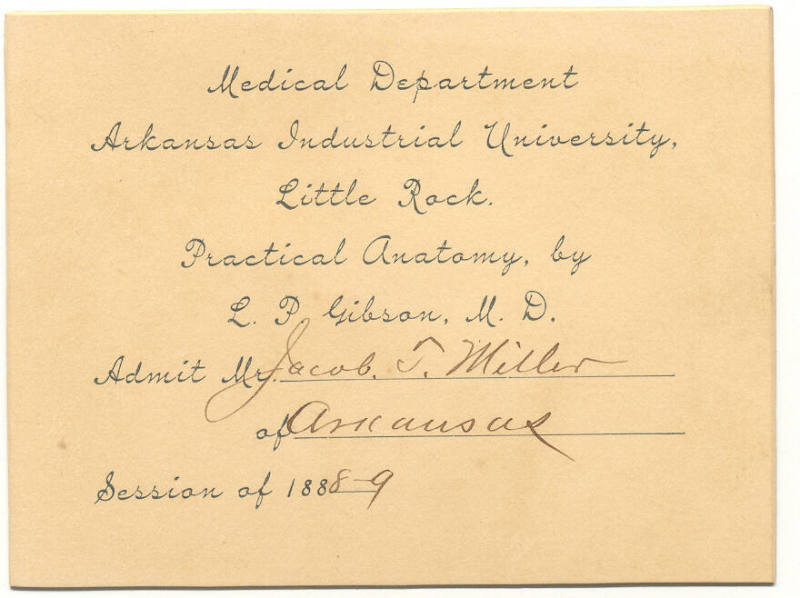 Medical Department
Arkansas Industrial University,
Little Rock.
Practical Anatomy, by
L. P. Gibson, M. D.
Admit Mr. Jacob. T. Miller
of Arkansas
Session of 1888-9